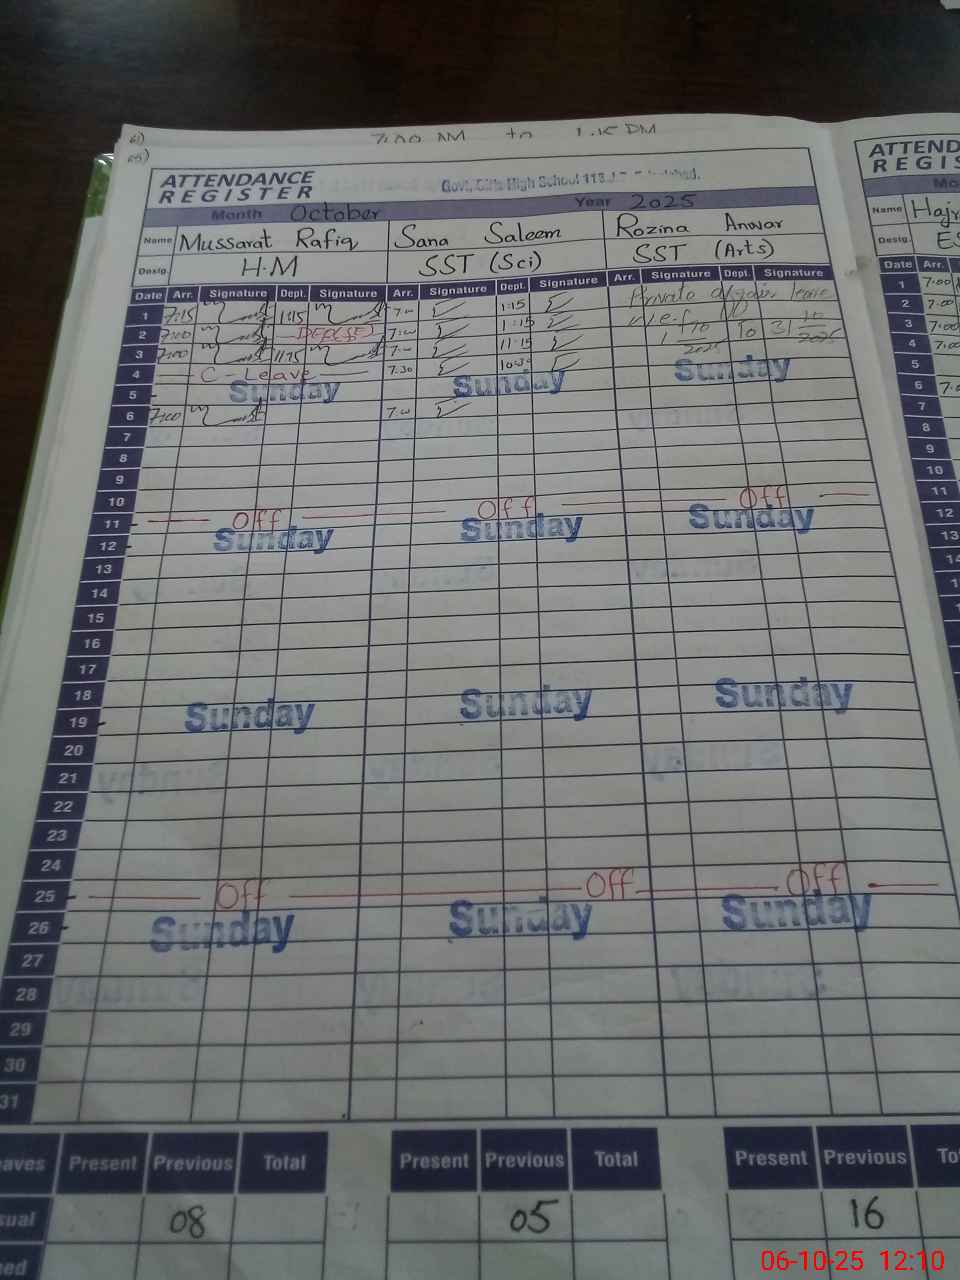 7:00 AM to 1:15 PM
ATTENDANCE
REGISTER
Govt. Girls High School 113 J.B. Faisalabad.
Month October Year 2025
Name Mussarat Rafiq Sana Saleem Rozina Anwar
Desig. H.M SST (Sci) SST (Arts)
Date Arr. Signature Dept. Signature Arr. Signature Dept. Signature Arr. Signature Dept. Signature
1 7:15 1:15 7:00 1:15 Private affair leave
2 7:00 DEO(SE) 7:00 1:15 w.e.f 1/10/2025 to 31/10/2025
3 7:00 1:15 7:00 11:15
4 C-Leave 7:30 10:30
5 Sunday Sunday Sunday
6 7:00 7:00
7
8
9
10
11 Off Off Off
12 Sunday Sunday Sunday
13
14
15
16
17
18
19 Sunday Sunday Sunday
20
21
22
23
24
25 Off Off Off
26 Sunday Sunday Sunday
27
28
29
30
31
Present Previous Total Present Previous Total Present Previous
08 05 16
ATTEND
REGIS
Mo
Name Hajr
Desig. ES
Date Arr.
1 7:00
2 7:00
3 7:00
4 7:00
5
6 7:0
7
8
9
10
11
12
13
14
06-10-25 12:10